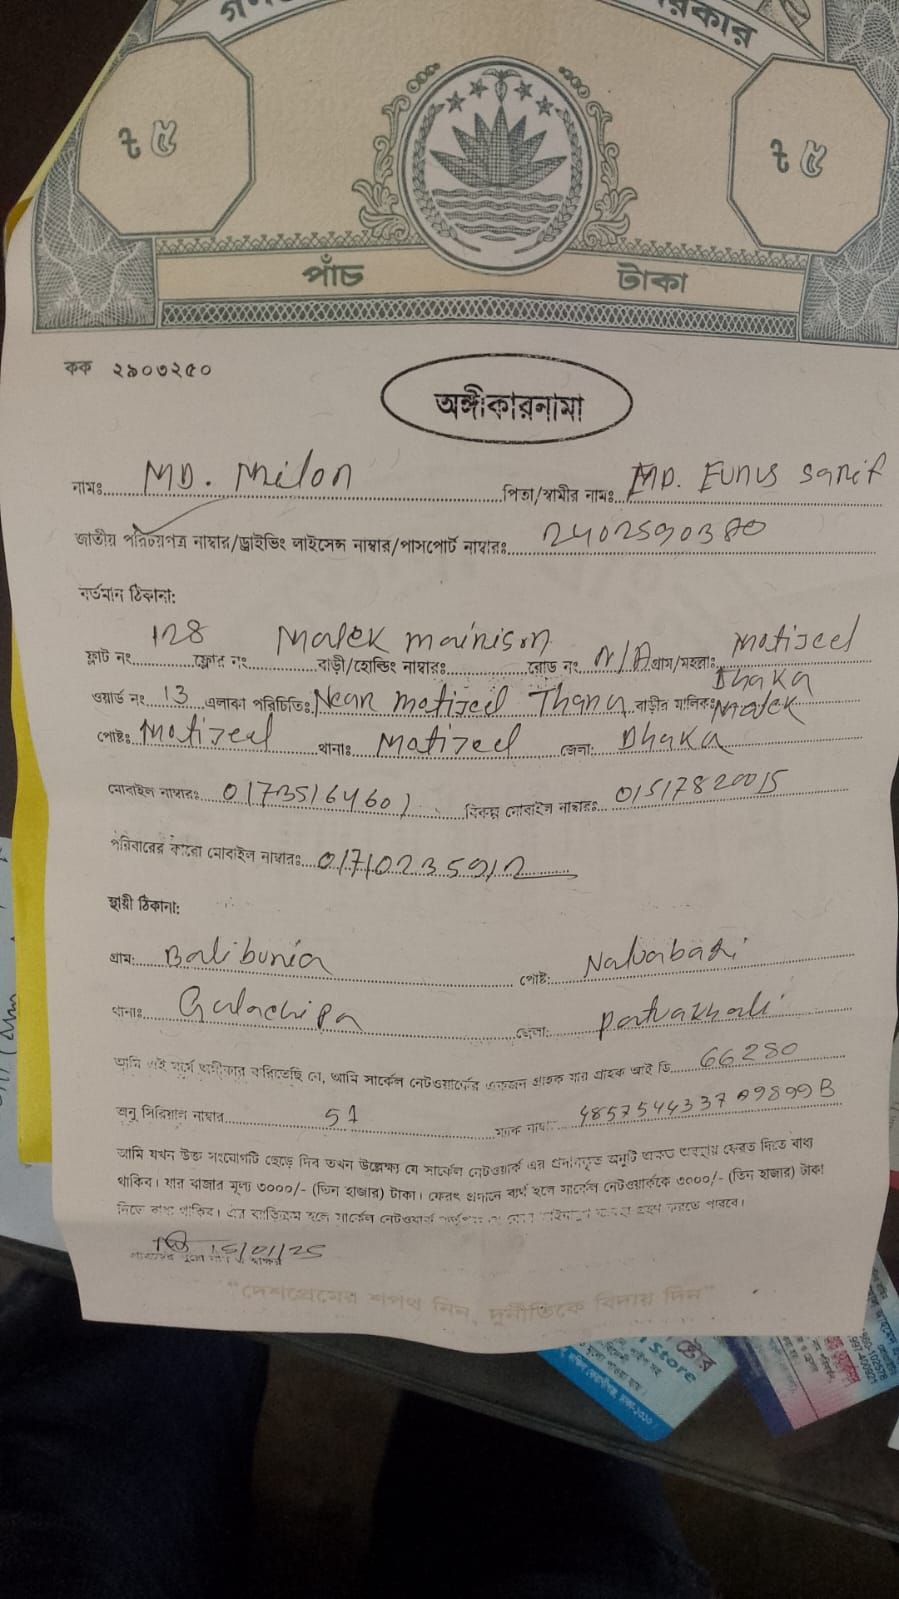 ৳ ৫
৳ ৫
পাঁচ টাকা
কক ২৯০৩২৫০
অঙ্গীকারনামা
নামঃ MD. Milon পিতা/স্বামীর নামঃ MD. Eunus Sarif
জাতীয় পরিচয়পত্র নাম্বার/ড্রাইভিং লাইসেন্স নাম্বার/পাসপোর্ট নাম্বারঃ 2402590380
বর্তমান ঠিকানা:
ফ্লাট নং 128 ফ্লোর নং Malek mainison বাড়ী/হোল্ডিং নাম্বারঃ রোড নং N/A গ্রাম/মহল্লাঃ Matijeel Dhaka
ওয়ার্ড নং 13 এলাকা পরিচিতিঃ Near Motijeel Thana বাড়ীর মালিকঃ Malek
পোষ্টঃ Motijeel থানাঃ Matijeel জেলা: Dhaka
মোবাইল নাম্বারঃ 01735164601 বিকল্প মোবাইল নাম্বারঃ 01517820015
পরিবারের কারো মোবাইল নাম্বারঃ 01710235912
স্থায়ী ঠিকানা:
গ্রাম: Balibunia পোষ্ট: Naluabagi
থানাঃ Galachipa জেলা: Patuakhali
আমি এই মর্মে অঙ্গীকার করিতেছি যে, আমি সার্কেল নেটওয়ার্কের একজন গ্রাহক যার গ্রাহক আই ডি 66280
অনু সিরিয়াল নাম্বার 51 ম্যাক নাম্বা: 4857544337A9899B
আমি যখন উক্ত সংযোগটি ছেড়ে দিব তখন উল্লেক্ষ্য যে সার্কেল নেটওয়ার্ক এর প্রদানকৃত অনুটি অক্ষত অবস্থায় ফেরত দিতে বাধ্য
থাকিব। যার বাজার মূল্য ৩০০০/- (তিন হাজার) টাকা। ফেরৎ প্রদানে ব্যর্থ হলে সার্কেল নেটওয়ার্ককে ৩০০০/- (তিন হাজার) টাকা
দিতে বাধ্য থাকিব। এর ব্যতিক্রম হলে সার্কেল নেটওয়ার্ক গ্রহণ করতে পারবে।
15/01/25
"দেশপ্রেমের শপথ নিন, দুর্নীতিকে বিদায় দিন"
স্টোর
Store